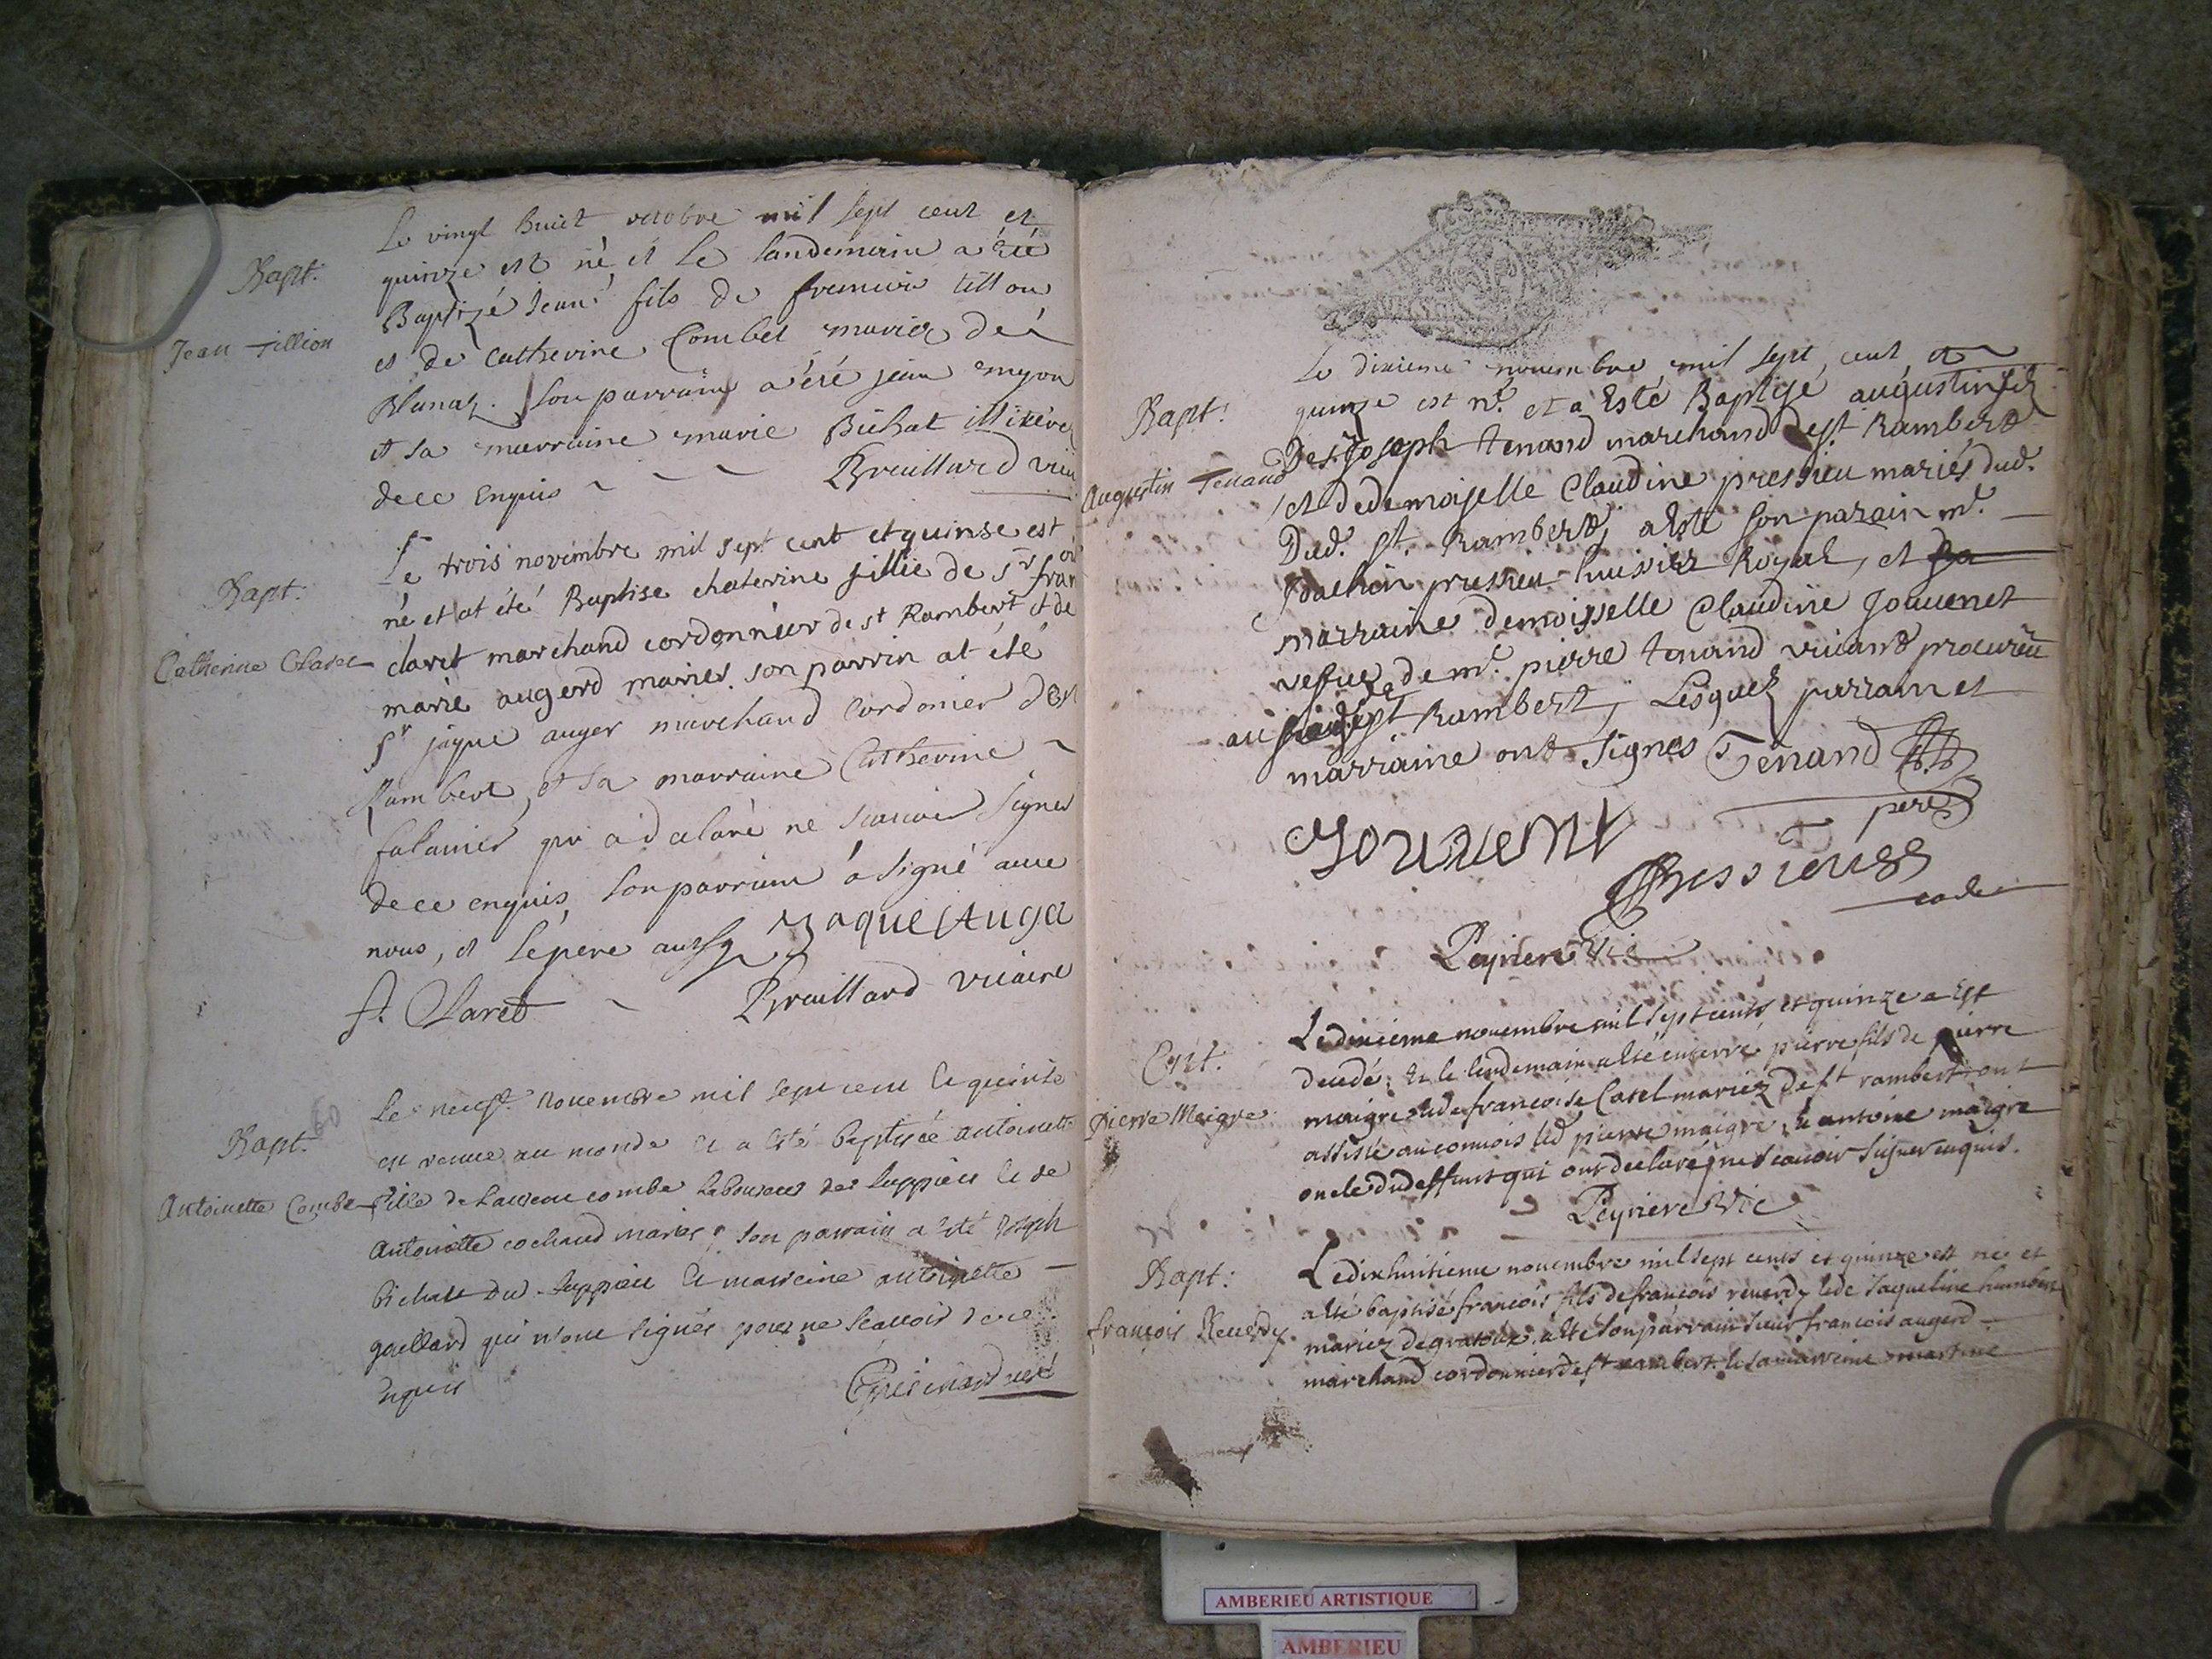 Le vingt huict octobre mil sept cent et
Bapt. quinze est né et le landemain a été
Baptizé Jean fils de francois tillion
Jean Tillion
et de Catherine Combet mariez de
Blanaz. Son parrain a été jean
et sa marraine marie Bichat illiterez
de ce enquis Breillard vic
Le trois novembre mil sept cent et quinse est
Bapt. né et at été Baptise chaterine fillie de Sr fran
Catherine Claret
claret marchand cordonnier de st Rambert et de
marie augerd mariés son parrin at été
Sr jaque auger marchand Cordonier de st
Rambert, et sa marraine Catherine
falamier qui a declaré ne scavoir signer
de ce enquis, son parrain a signé avec
nous, et le pere aussy Jaque Auger
f. Claret Breillard vicaire
Le neuf novembre mil sept cent et quinse
Bapt. est venue au monde et a esté baptisée antoinette
Antoinette Combe
fille de Laurent combe laboureur de luppieu et de
Antoinette cochaud mariés, son parrain a esté Joseph
bichat du luppieu et marreine antoinette
gaillard qui n'ont signés pour ne scavoir de ce
enquis curé
Le dixieme novembre mil sept cent et
Bapt. quinze est né et a esté Baptisé augustin filz
De Sr Joseph tenand marchand de st Rambert
Augustin Tenand
et de demoiselle Claudine pressieu mariés dud.
Dud. st. Rambert, a esté son parain mr.
pressieu huissier Royal, et sa
marraine demoisselle Claudine Jouvenet
vefue de mr. pierre tenand vivant procureu
au st Rambert, Lesquelz parrain et
marraine ont signes Tenand
pere
Jouvent
Pressieu
Peyriere Vic
Le dixieme novembre mil sept cents et quinze a est
Ent. decedé, et le lendemain a esté enterré pierre fils de pierre
Pierre Maigre
maigre et de francoise Catel mariez de st rambert ont
assisté au convois led pierre maigre, et antoine maigre
oncle dud deffunt qui ont declaré ne scavoir signer enquis.
Peyriere Vic
Bapt: Le dixhuitieme novembre mil sept cents et quinze est né et
a esté baptisé francois fils de francois reverdy et de Jaqueline humbert
francois Reverdy
mariez de gratoux, a esté son parrain sieur francois augerd
marchand cordonnier de st rambert et sa marreine martine
AMBERIEU ARTISTIQUE
AMBERIEU